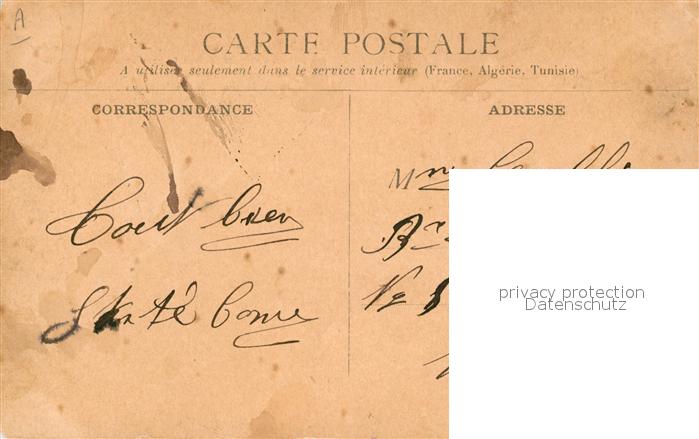 A
CARTE POSTALE
A utiliser seulement dans le service intérieur (France, Algérie, Tunisie)
CORRESPONDANCE
ADRESSE
Tout bien
Santé bonne
privacy protection
Datenschutz